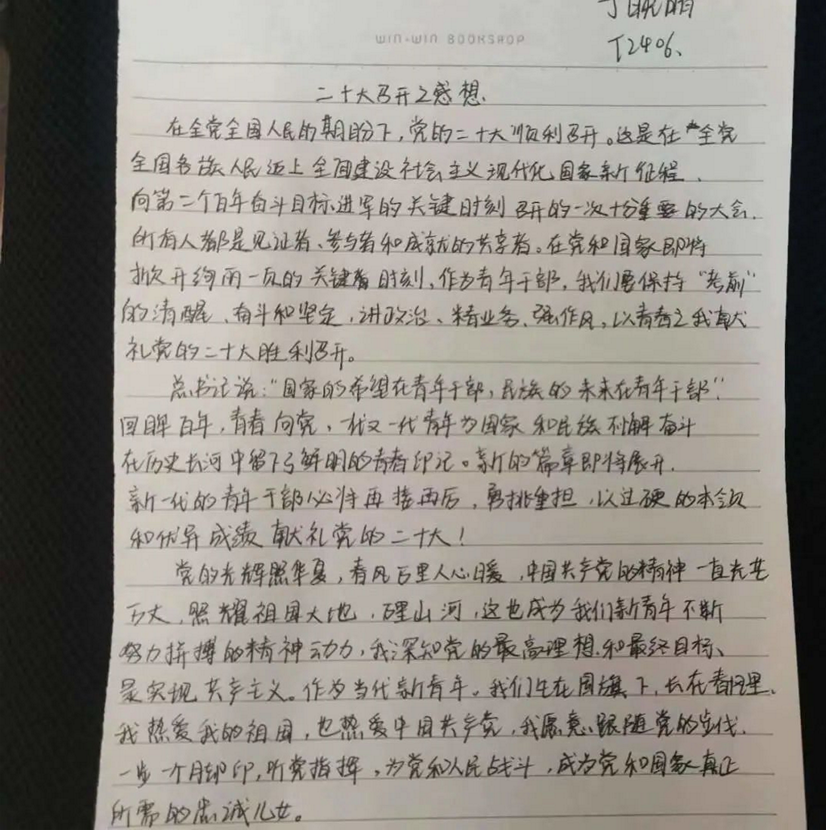 丁
T2406、
WIN-WIN BOOKSHOP
二十大召开之感想
在全党全国人民的期盼下，党的二十大顺利召开。这是在全党
全国各族人民迈上全面建设社会主义现代化国家新征程，
向第二个百年奋斗目标进军的关键时刻召开的一次十分重要的大会，
所有人都是见证者、参与者和成就的共享者。在党和国家即将
掀开绚丽一页的关键时刻，作为青年干部，我们要保持“考前”
的清醒、奋斗和坚定，讲政治、精业务、强作风，以青春之我献
礼党的二十大胜利召开。
总书记说：“国家的希望在青年干部，民族的未来在青年干部”！
回眸百年，青春向党，一代又一代青年为国家和民族不懈奋斗
在历史长河中留下了鲜明的青春印记。新的篇章即将展开，
新一代的青年干部必将再接再后，勇挑重担，以过硬的本领
和优异成绩献礼党的二十大！
党的光辉照华夏，春风万里人心暖，中国共产党的精神一直光芒
万丈，照耀祖国大地，山河，这也成为我们新青年不断
努力拼搏的精神动力，我深知党的最高理想和最终目标、
是实现共产主义。作为当代新青年，我们生在国旗下，长在春风里，
我热爱我的祖国，也热爱中国共产党，我愿意跟随党的步伐，
一步一个月却印，听党指挥，为党和人民战斗，成为党和国家真正
所需的忠诚儿女。